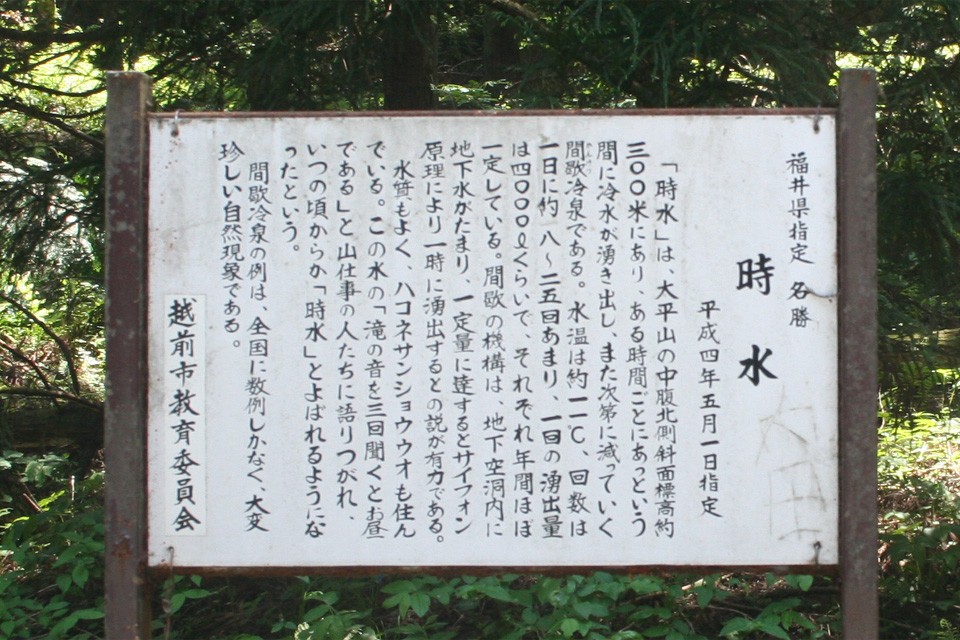 福井県指定 名勝
時水
平成四年五月一日指定
「時水」は、大平山の中腹北側斜面標高約
三〇〇米にあり、ある時間ごとにあっという
間に冷水が湧き出し、また次第に減っていく
間歇冷泉である。水温は約一一℃、回数は
一日に約一八～二五回あまり、一回の湧出量
は四〇〇〇ℓくらいで、それぞれ年間ほぼ
一定している。間歇の機構は、地下空洞内に
地下水がたまり、一定量に達するとサイフォン
原理により一時に湧出するとの説が有力である。
水質もよく、ハコネサンショウウオも住ん
でいる。この水の「滝の音を三回聞くとお昼
である」と山仕事の人たちに語りつがれ、
いつの頃からか「時水」とよばれるようにな
ったという。
間歇冷泉の例は、全国に数例しかなく、大変
珍しい自然現象である。
越前市教育委員会